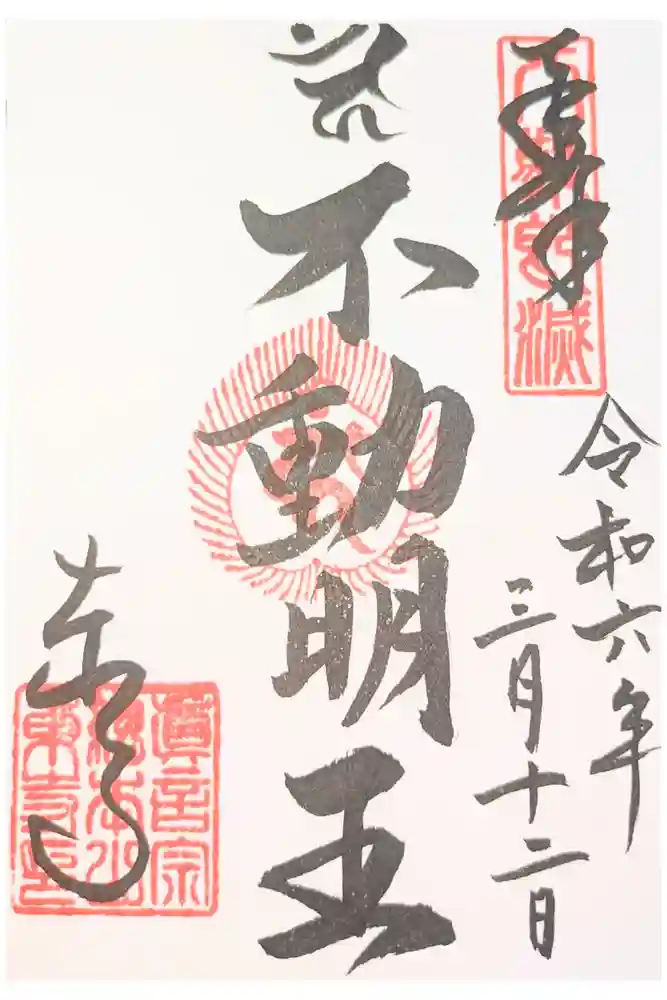 奉拝
令和六年
三月十二日
不動明王
東寺
眞言宗
總本山
東寺印